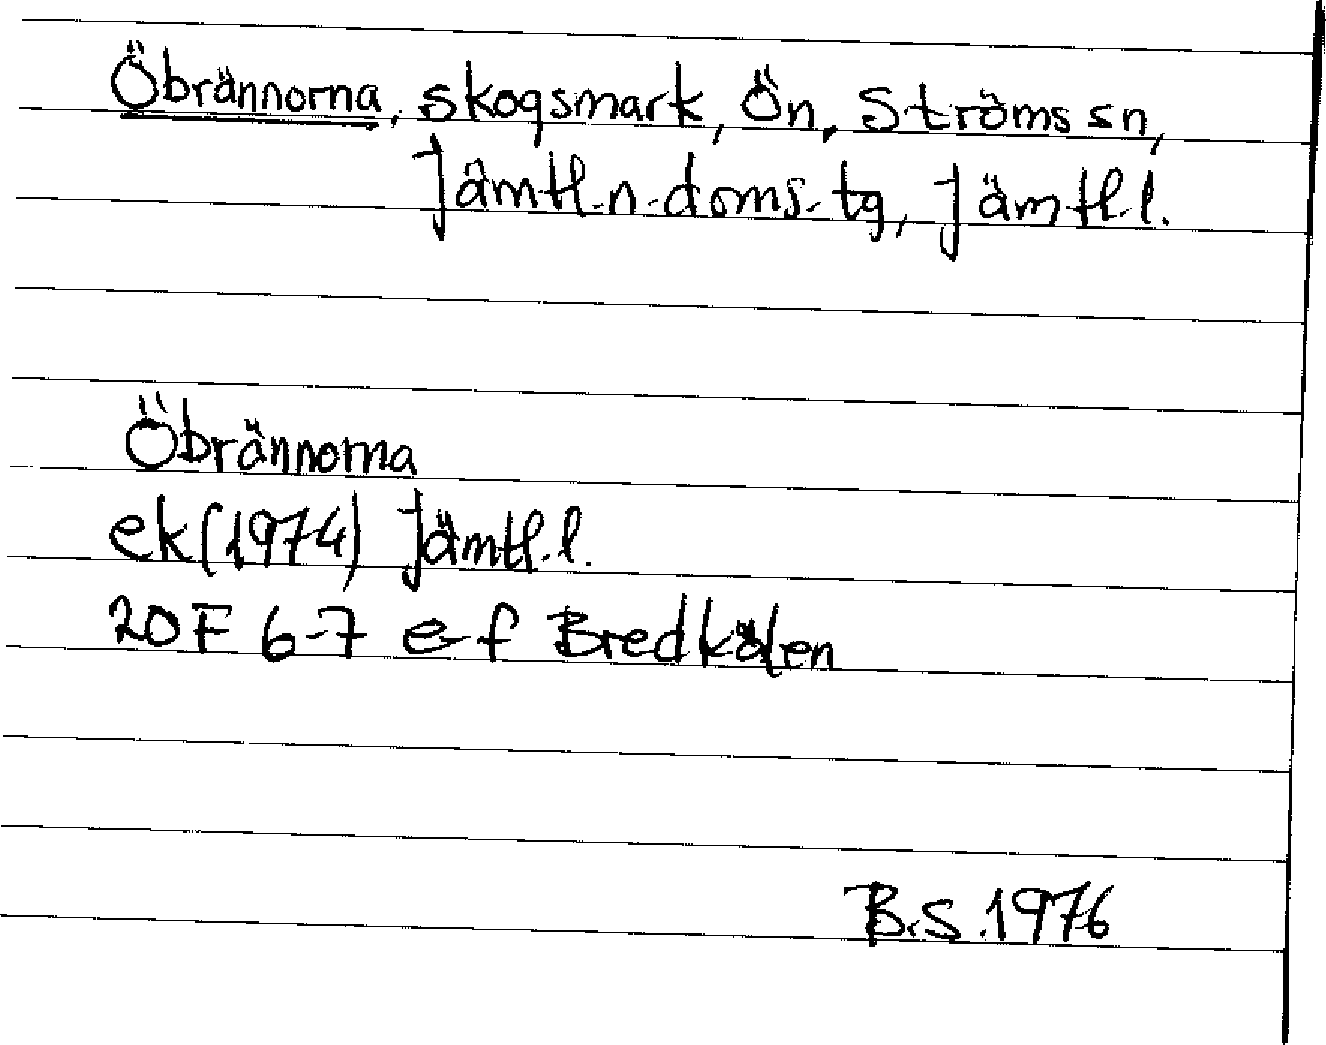 Öbrännorna, skogsmark, Ön, Ströms sn,
Jämtl.n.doms.tg, Jämtl.l.
Öbrännorna
ek (1974) Jämtl.l.
20 F 6-7 e-f Bredkälen
B.S. 1976